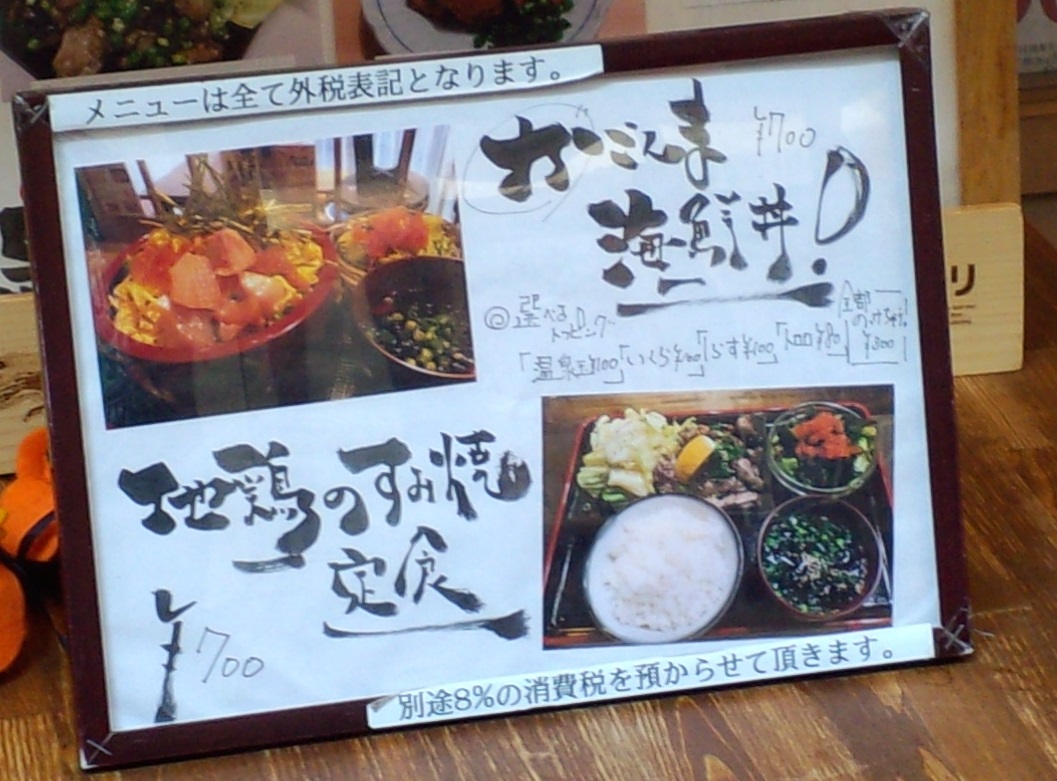 メニューは全て外税表記となります。
¥700
海鮮丼!
◎選べる
トッピング
全部
のっけちゃう!
¥300
「温泉玉¥100」「いくら¥100」「しらす¥100」「トロロ¥80」
地鶏のすみ焼
定食
¥700
別途8%の消費税を預からせて頂きます。
リ